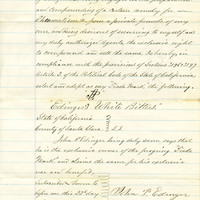 Compounding of a certain remedy for
from a private formula of my
own, and being desirous of securing to myself and
my duly authorized agents the exclusive right
to compound and sell the same. I hereby, in
compliance with the provisions of Section 3197
Article 3 of the Political Code of the State of California
select and adopt as my Trade Mark, the following,
Edinger's White Bitters.
State of California
County of Santa Clara } S.S.
John Edinger being duly sworn, says that
he is the exclusive owner of the foregoing Trade
Mark, and claims the same for his exclusive
use and benefit,
Subscribed & Sworn to
before me this 23d day
John P. Edinger